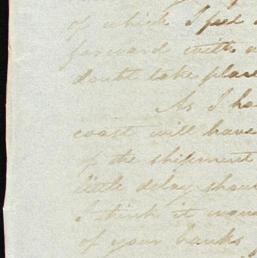 of which I feel
forward with
doubt take place
As I ha
coast will have
of the shipment
little delay shou
I think it wou
of your banks